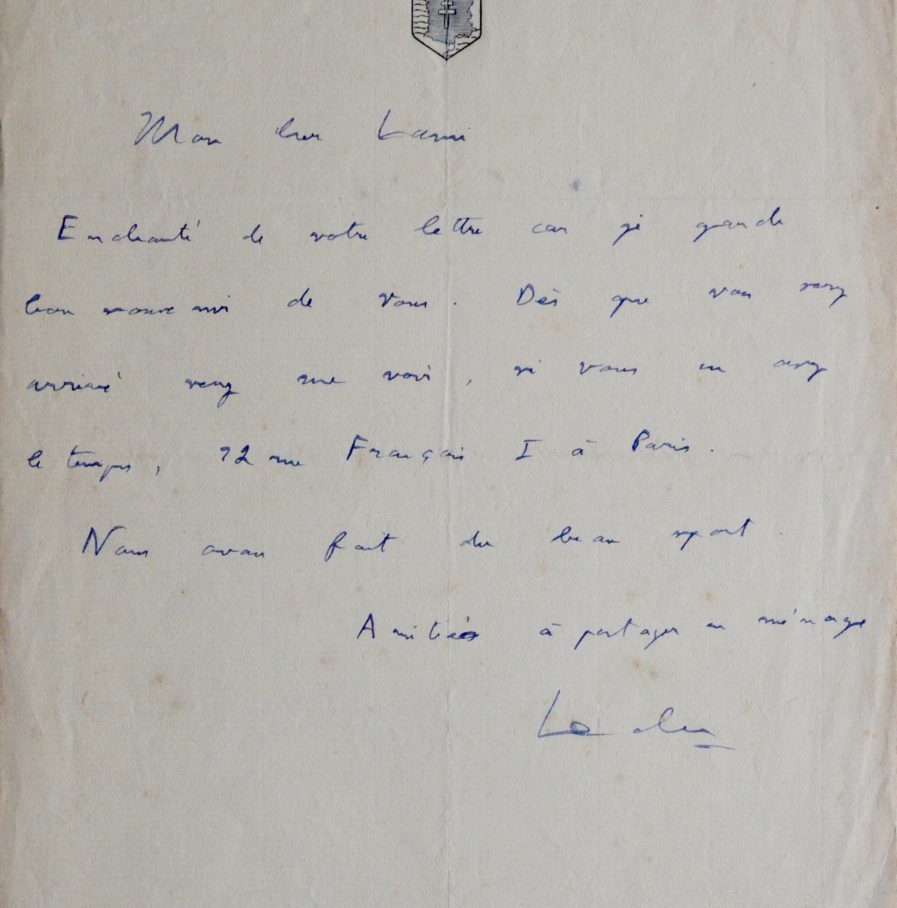 Mon cher
Enchanté de votre lettre car je garde
bon souvenir de vous. Dès que vous serez
arrivé venez me voir, si vous en avez
le temps, 12 rue François I à Paris.
Nous avons fait du beau sport.
Amitiés à partager en ménage